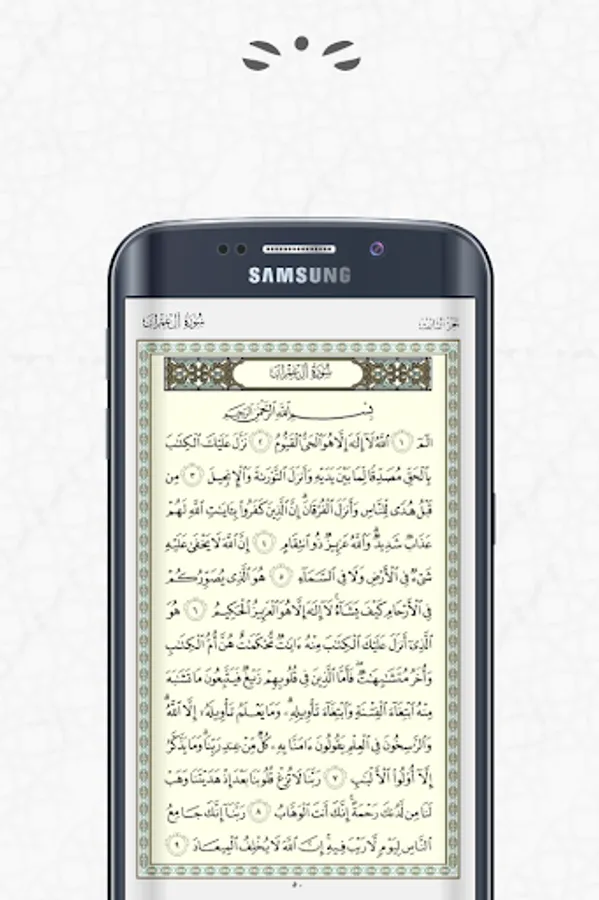 SAMSUNG
سُورَةُ آلِ عِمْرَانَ
الجزء الثالث
سُورَةُ آلِ عِمْرَانَ
بِسْمِ ٱللَّهِ ٱلرَّحْمَٰنِ ٱلرَّحِيمِ
الٓمٓ ١ ٱللَّهُ لَآ إِلَٰهَ إِلَّا هُوَ ٱلْحَىُّ ٱلْقَيُّومُ ٢ نَزَّلَ عَلَيْكَ ٱلْكِتَٰبَ
بِٱلْحَقِّ مُصَدِّقًا لِّمَا بَيْنَ يَدَيْهِ وَأَنزَلَ ٱلتَّوْرَىٰةَ وَٱلْإِنجِيلَ ٣ مِن
قَبْلُ هُدًى لِّلنَّاسِ وَأَنزَلَ ٱلْفُرْقَانَ ۗ إِنَّ ٱلَّذِينَ كَفَرُوا۟ بِـَٔايَٰتِ ٱللَّهِ لَهُمْ
عَذَابٌ شَدِيدٌ ۗ وَٱللَّهُ عَزِيزٌ ذُو ٱنتِقَامٍ ٤ إِنَّ ٱللَّهَ لَا يَخْفَىٰ عَلَيْهِ
شَىْءٌ فِى ٱلْأَرْضِ وَلَا فِى ٱلسَّمَآءِ ٥ هُوَ ٱلَّذِى يُصَوِّرُكُمْ
فِى ٱلْأَرْحَامِ كَيْفَ يَشَآءُ ۚ لَآ إِلَٰهَ إِلَّا هُوَ ٱلْعَزِيزُ ٱلْحَكِيمُ ٦ هُوَ
ٱلَّذِىٓ أَنزَلَ عَلَيْكَ ٱلْكِتَٰبَ مِنْهُ ءَايَٰتٌ مُّحْكَمَٰتٌ هُنَّ أُمُّ ٱلْكِتَٰبِ
وَأُخَرُ مُتَشَٰبِهَٰتٌ ۖ فَأَمَّا ٱلَّذِينَ فِى قُلُوبِهِمْ زَيْغٌ فَيَتَّبِعُونَ مَا تَشَٰبَهَ
مِنْهُ ٱبْتِغَآءَ ٱلْفِتْنَةِ وَٱبْتِغَآءَ تَأْوِيلِهِۦ ۗ وَمَا يَعْلَمُ تَأْوِيلَهُۥٓ إِلَّا ٱللَّهُ ۗ
وَٱلرَّٰسِخُونَ فِى ٱلْعِلْمِ يَقُولُونَ ءَامَنَّا بِهِۦ كُلٌّ مِّنْ عِندِ رَبِّنَا ۗ وَمَا يَذَّكَّرُ
إِلَّآ أُو۟لُوا۟ ٱلْأَلْبَٰبِ ٧ رَبَّنَا لَا تُزِغْ قُلُوبَنَا بَعْدَ إِذْ هَدَيْتَنَا وَهَبْ
لَنَا مِن لَّدُنكَ رَحْمَةً ۚ إِنَّكَ أَنتَ ٱلْوَهَّابُ ٨ رَبَّنَآ إِنَّكَ جَامِعُ
ٱلنَّاسِ لِيَوْمٍ لَّا رَيْبَ فِيهِ ۚ إِنَّ ٱللَّهَ لَا يُخْلِفُ ٱلْمِيعَادَ ٩
٥٠